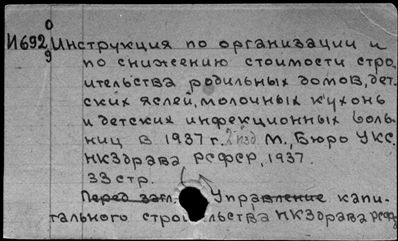 И692 Инструкция по организации и
о
9
по снижению стоимости стро-
ительства родильных домов, дет-
ских яслей, молочных кухонь
и детских инфекционных боль-
ниц в 1937 г. 2 изд М., Бюро УКС.
НКЗдрава РСФСР, 1937.
33 стр.
Перед загл. Управление капи-
тального строительства НКЗдрава РСФСР